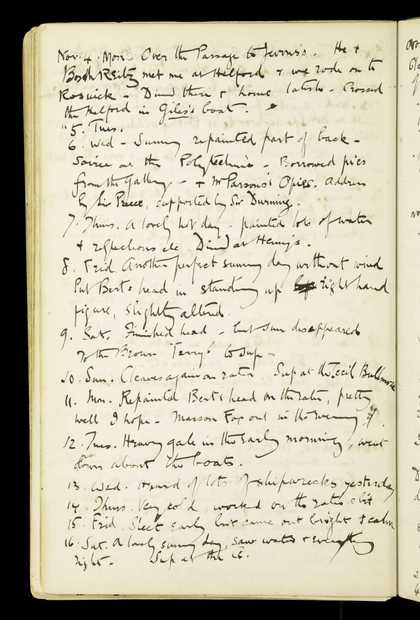 Nov. 4. Mon. Over the Passage to Jevons's. He &
met me at Helford & we rode on to
Roswick - Dined there & home late. Crossed
the Helford in Giles's boat.
"5. Tues.
6. Wed - Sunny repainted part of back -
Soirée at the Polytechnic - Borrowed pics
from the Gallery - & Mr Parsons' Opies. Address
by Sir Preece, supported by Sir Durning.
7. Thurs. A lovely hot day - painted lots of water
& reflections etc Dined at Henry's.
8. Frid Another perfect sunny day without wind
Put Bert's head in standing up right hand
figure, slightly altered.
9. Sat. Finished head - but sun disappeared
To the Brown Terry's to sup -
10. Sun. Cleaves again on water Sup at the Cecil
11. Mon. Repainted Bert's head on the later, pretty
well I hope - Masson Fox out in the evening
12. Tues. Heavy gale in the early morning, went
down about the boats.
13. Wed. Heard of lots of shipwrecks yesterday
14. Thurs. Very cold worked on the water a bit
15. Frid. Sleet early but came out bright & calm
16. Sat. A lovely sunny day, saw water & everything
right. Sup at the C.